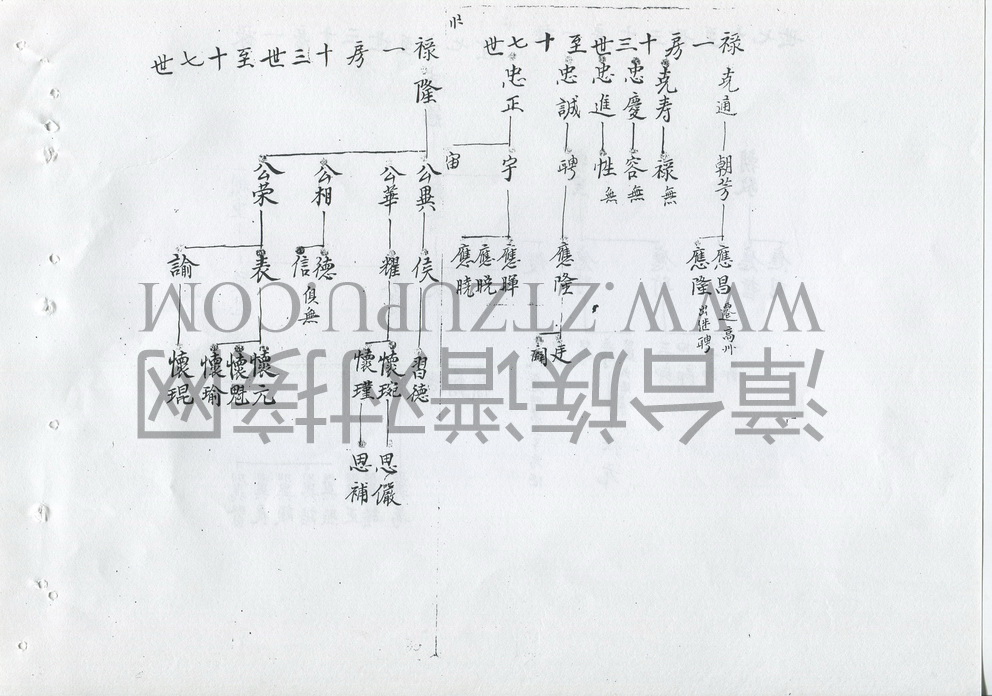 禄一房十三世至十七世
克通
朝芳
應昌
遷高州
應隆
出继聘
克寿
禄
無
忠慶
容
無
忠進
性
無
忠誠
聘
應隆
忠正
宇
宙
應暉
應晄
應曉
禄一房十三世至十七世
隆
公異
侯
習德
公華
耀
懷琬
懷瑾
思儼
思補
公相
德
無
信
公榮
表
懷元
懷魁
懷瑜
諭
懷琨
WWW.ZTZUPU.COM
漳台族谱对接网